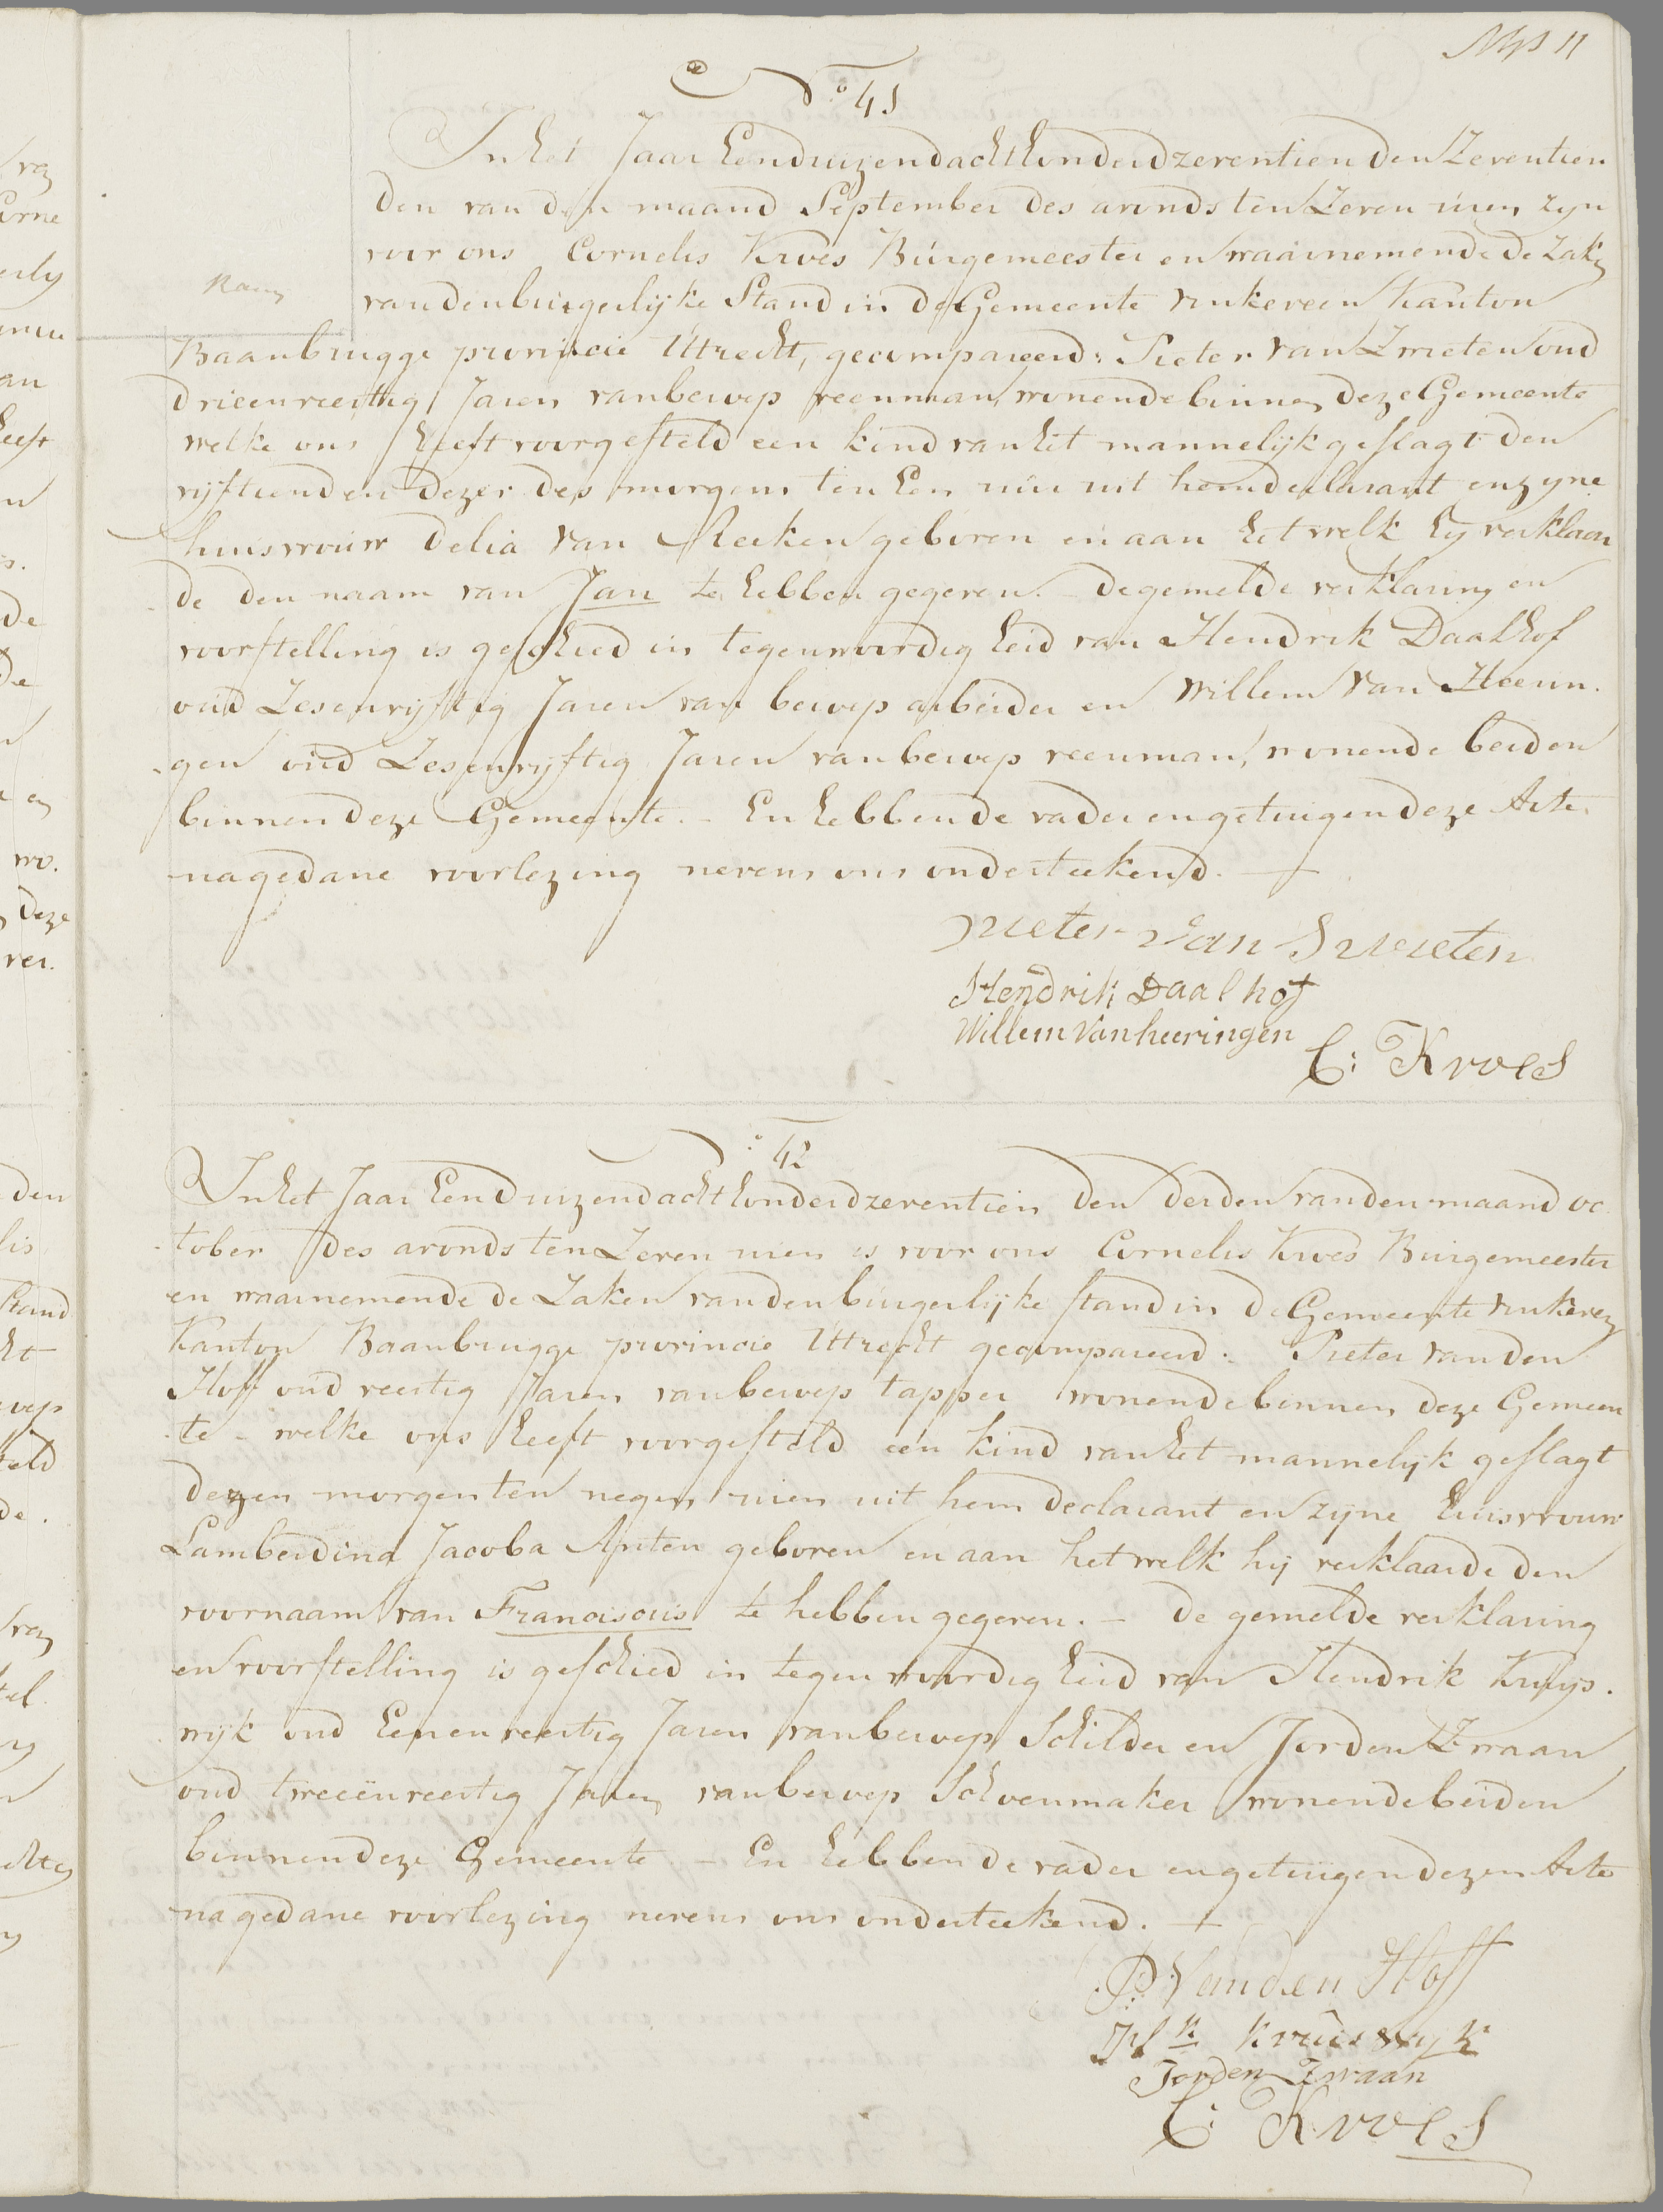 N.o 41
In het Jaar Eenduizendachthonderdzeventien den Zeventien
den van den maand September des avonds ten Zeven uren zyn
voor ons Cornelis Kroes Burgemeester en waarnemende de Zaken
van den burgerlijke Stand in de Gemeente vinkeveen Kanton
Baanbrugge provincie Uttrecht, gecompareerd: Pieter van Zwieten oud
drieenveertig Jaren van beroep veenman, wonende binnen deze Gemeente
welke ons heeft voorgesteld een kind van het mannelijk geslagt den
vijftienden dezer des morgens ten Een uur uit hem declarant en zyne
huisvrouw Delia van Reeken geboren en aan het welk hy verklaar
de den naam van Jan te hebben gegeven. De gemelde verklaring en
voorstelling is geschied in tegenwoordigheid van Hendrik Daalhof
oud Zesenvijftig Jaren van beroep arbeider en Willem van Heerin.
gen oud Zesenvijftig Jaren van beroep veenman, wonende beiden
binnen deze Gemeente. - En hebben de vader en getuigen deze Acte
na gedane voorlezing nevens ons onderteekend.
pieter van Swieten
Hendrik Daalhof
Willem van heeringen
C: Kroes
N.o 42
In het Jaar Eenduizendachthonderdzeventien den derden van den maand oc
tober des avonds ten Zeven uren is voor ons Cornelis Kroes Burgemeester
en waarnemende de Zaken van den burgerlijke stand in de Gemeente vinkeveen
Kanton Baanbrugge provincie Uttrecht gecompareerd: Pieter van den
Hoff oud veertig Jaren van beroep tapper wonende binnen deze Gemeen
te - welke ons heeft voorgesteld een kind van het mannelijk geslagt
dezen morgen ten negen uren uit hem declarant en zyne huisvrouw
Lamberdina Jacoba geboren en aan het welk hij verklaarde den
voornaam van Franciscus te hebben gegeven. - De gemelde verklaring
en voorstelling is geschied in tegenwoordigheid van Hendrik Kruijs.
wijk oud Eenenveertig Jaren van beroep Schilder en Jorden Zwaan
oud tweeënveertig Jaren van beroep Schoenmaker wonende beiden
binnen deze Gemeente - En hebben de vader en getuigen dezen Acte
na gedane voorlezing nevens ons onderteekend.
P: Van den Hoff
Hk Kruiswyk
Jorden Zwaan
C: Kroes